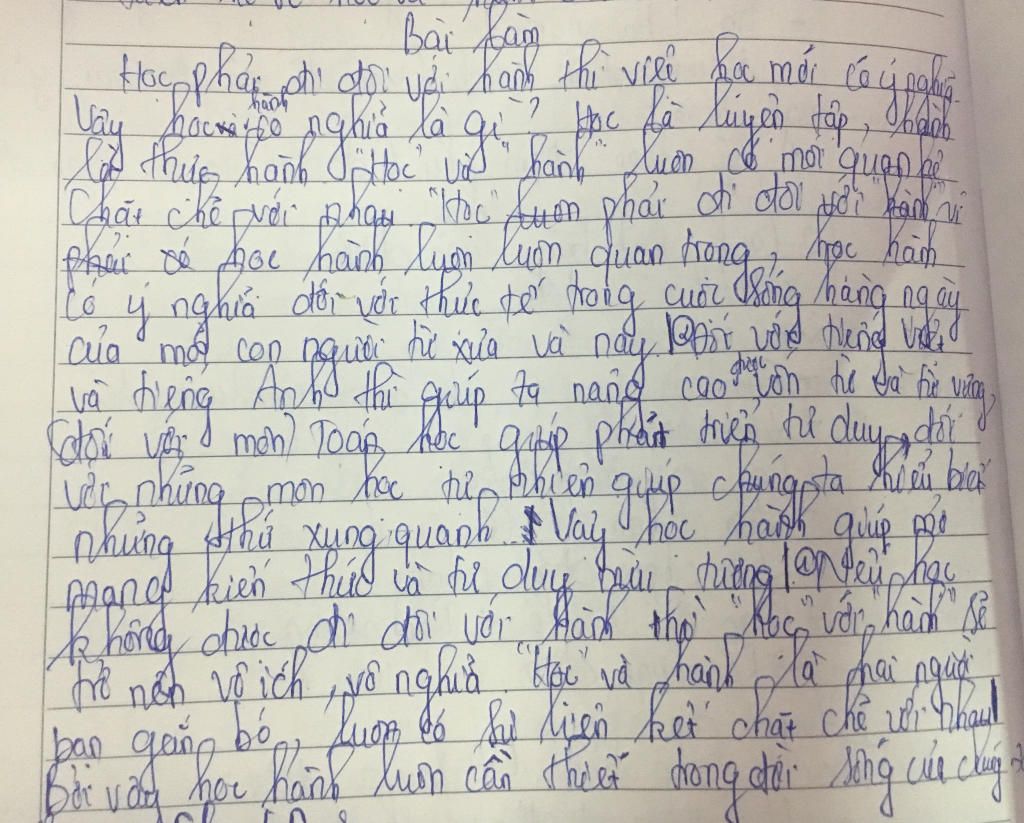 Bài Làm
Học phải đi đôi với hành thì việc học mới có ý nghĩa.
Vậy học hành có nghĩa là gì? Học là luyện tập, hành
là thực hành. "Học" và "hành" luôn có mối quan hệ
Chặt chẽ với nhau. "Học" luôn phải đi đôi với "hành" vì
học hành luôn luôn quan trọng, học hành
có ý nghĩa đối với thực tế trong cuộc sống hàng ngày
của mỗi con người từ xưa và nay. Đối với tiếng việt
và tiếng Anh thì giúp ta nâng cao được vốn từ và từ vựng,
(đối với môn) Toán học giúp phát triển tư duy, đối
với những môn học tự nhiên giúp chúng ta hiểu biết
những thứ xung quanh. Vậy học hành giúp mở
mang kiến thức và tư duy trừu tượng. Nếu học
không được đi đôi với hành thì "học" với "hành" sẽ
trở nên vô ích, vô nghĩa. "Học" và hành là hai người
bạn gắn bó, luôn có sự liên kết chặt chẽ với nhau
Bởi vậy học hành luôn cần thiết trong đời sống của chúng